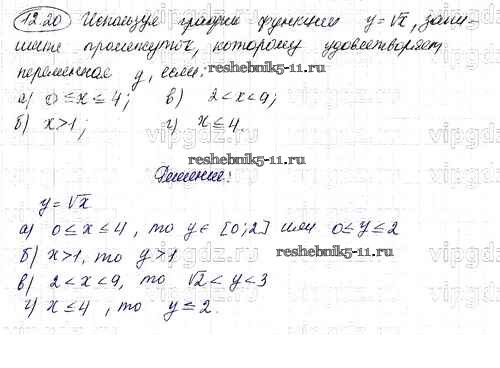 12.20 Используя график функции y=√x, запи-
шите промежуток, которому удовлетворяет
переменная y, если:
reshebnik5-11.ru
а) 0≤x≤4; в) 2<x<9;
б) x>1; г) x≤4.
vipgdz.ru
reshebnik5-11.ru
Решение:
y=√x
а) 0≤x≤4, то y∈ [0;2] или 0≤y≤2
б) x>1, то y>1
reshebnik5-11.ru
в) 2<x<9, то √2<y<3
г) x≤4, то y≤2.